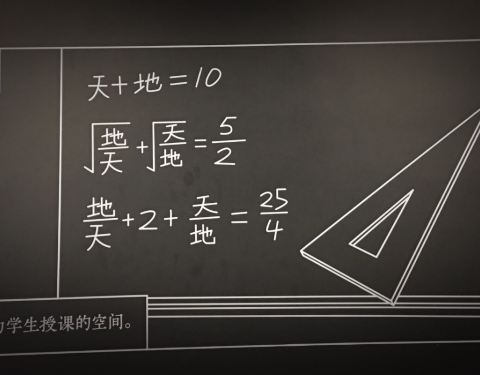 天+地=10
√(地/天)+√(天/地)=5/2
地/天+2+天/地=25/4
学生授课的空间。